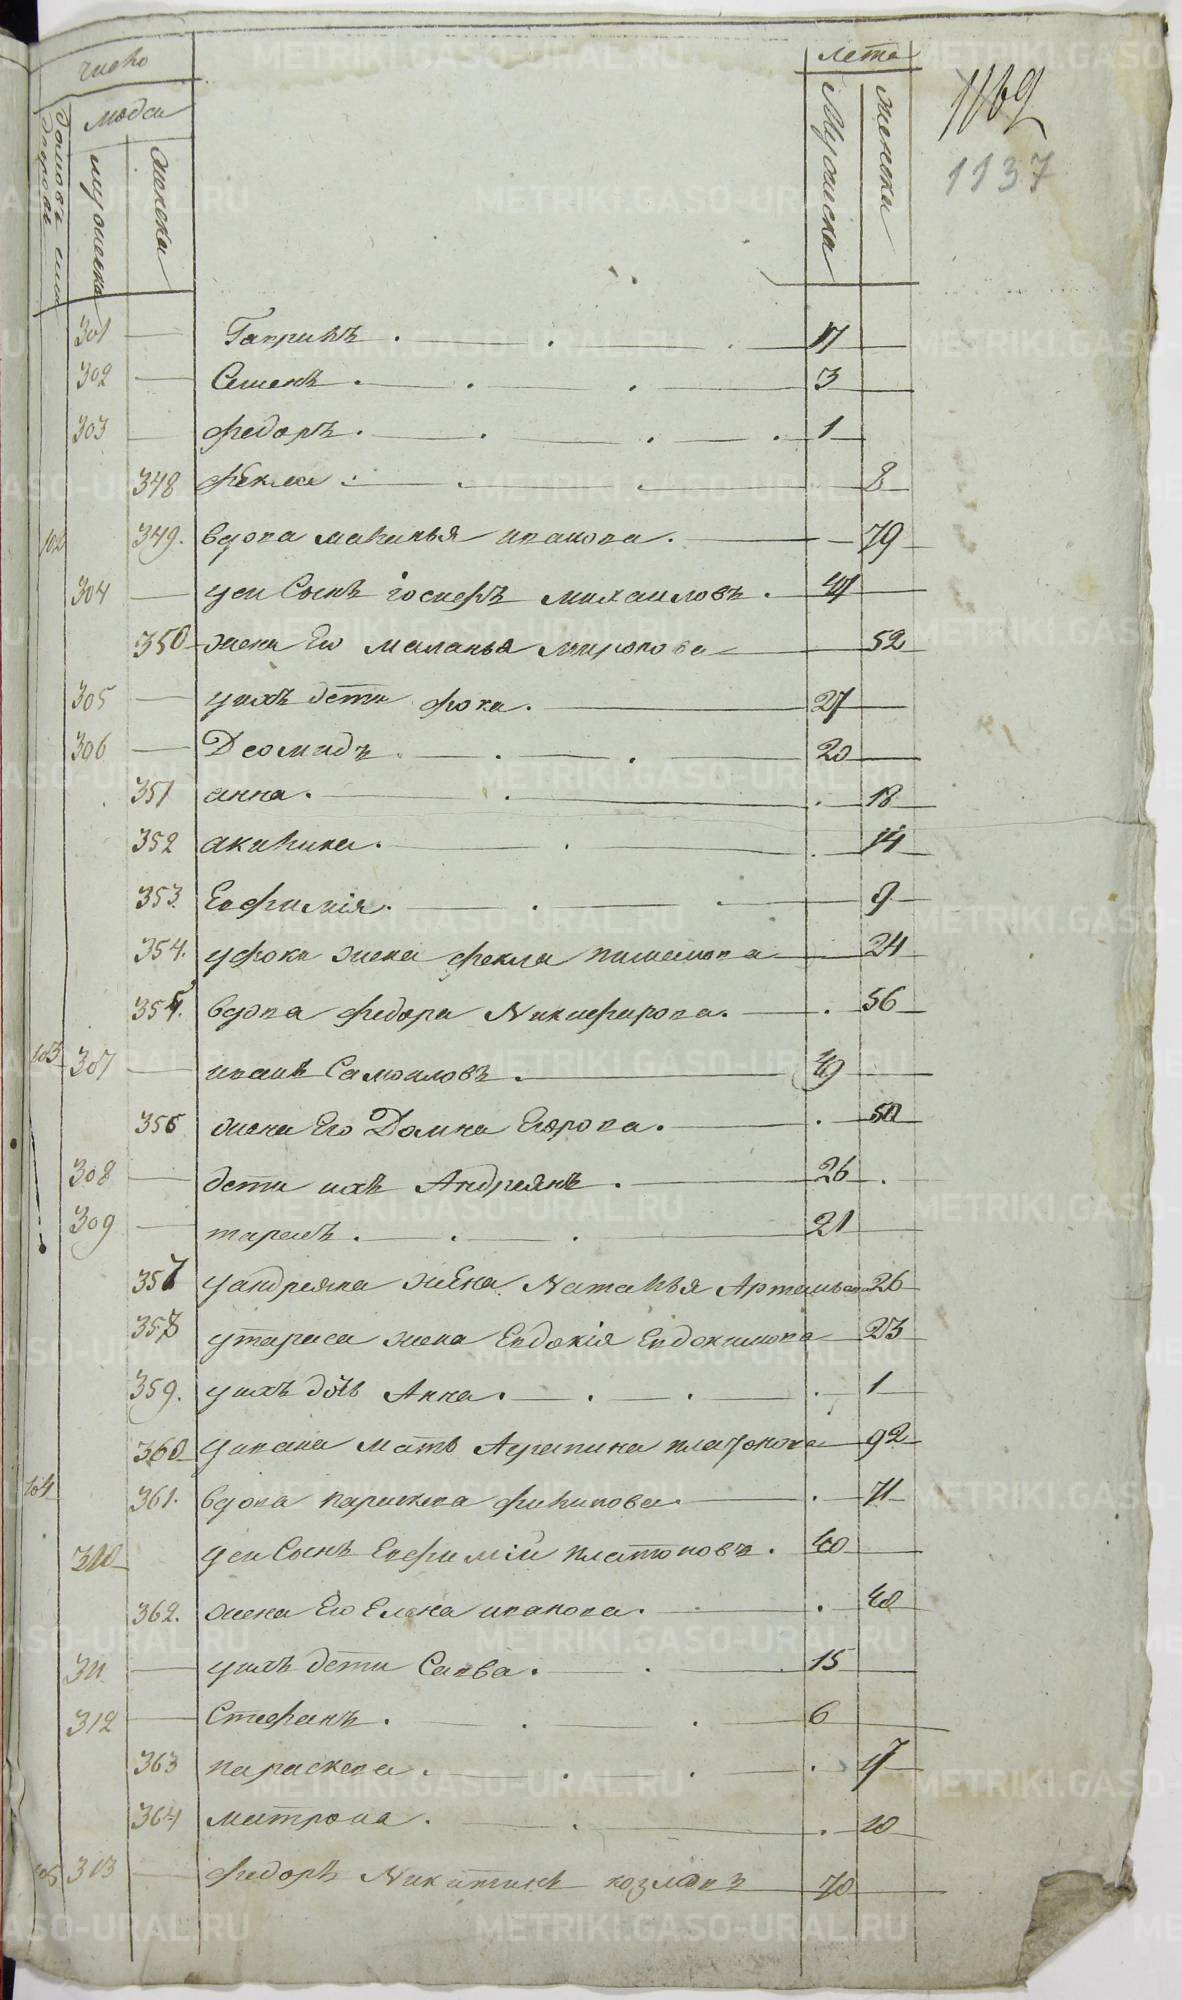 число
лета
1169
1137
людеи
домовъ или дворовъ
мужеска
женска
Мужиска
женски
301 Гаприлъ 17
302 Семенъ 3
303 федоръ 1
348 фекла 8
102 349. вдова маланья иванова 79
304 уеи Сынъ іосифъ михаиловъ 47
350 жена Его маланья миронова 52
305 уихъ дети фока 27
306 Деомидъ 20
351 анна 18
352 акилина 14
353 Евфимія 9
354. уфоки жена фекла пименова 24
355. вдова федора Никифирова 56
103 307 иванъ Самоиловъ 49
356 жена Его Домна Егорова 50
308 дети ихъ Андреянъ 26
309 тарасъ 21
357 уандреяна жена Наталья Артемьева 26
358 утараса жена Евдокія Евдокимова 23
359. уихъ дочь Анна 1
360 уивана мать Агрипина платонова 92
104 361. вдова парискева филипова 71
310 уеи Сынъ Евфимій платоновъ 40
362. жена Его Елена иванова 40
311 уихъ дети Савва 15
312 Стефанъ 6
363 параскева 17
364 матрона 10
105 313 федоръ Никитинъ козловъ 70
METRIKI.GASO-URAL.RU